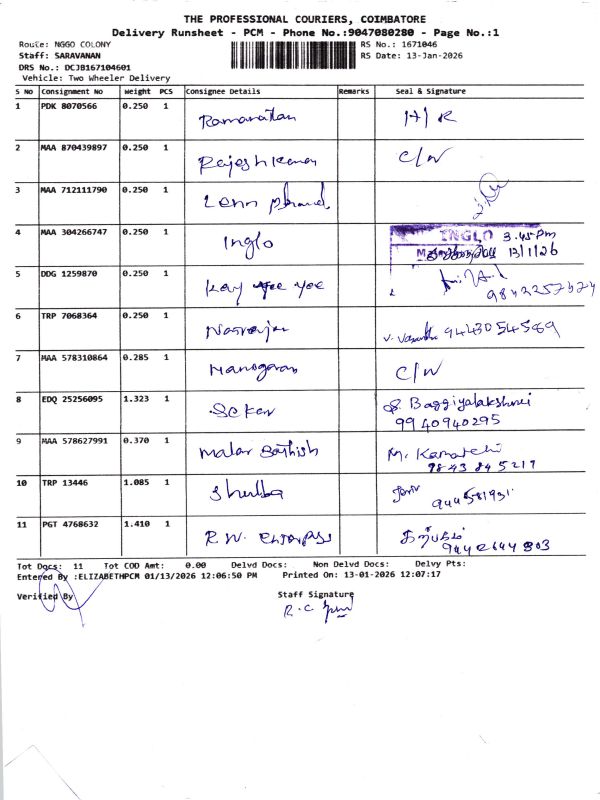 THE PROFESSIONAL COURIERS, COIMBATORE
Delivery Runsheet - PCM - Phone No.:9047080280 - Page No.:1
Route: NGGO COLONY
RS No.: 1671046
Staff: SARAVANAN
RS Date: 13-Jan-2026
DRS No.: DCJB167104601
Vehicle: Two Wheeler Delivery
S No Consignment No Weight PCS Consignee Details Remarks Seal & Signature
1 PDK 8070566 0.250 1 Ramanatan H/R
2 MAA 870439897 0.250 1 Rajesh Kanan C/W
3 MAA 712111790 0.250 1
4 MAA 304266747 0.250 1 Inglo INGLO 3.45 Pm
13/1/26
5 DDG 1259870 0.250 1 Kay yee yee
6 TRP 7068364 0.250 1 Natraján V. 9443054569
7 MAA 578310864 0.285 1 Manogaran C/W
8 EDQ 25256095 1.323 1 Seker S. Baggiyalakshmi
9940940295
9 MAA 578627991 0.370 1 Malar Sathish M. Kamatchi
9843845219
10 TRP 13446 1.085 1
11 PGT 4768632 1.410 1 R.W.
9442644303
Tot Docs: 11 Tot COD Amt: 0.00 Delvd Docs: Non Delvd Docs: Delvy Pts:
Entered By :ELIZABETHPCM 01/13/2026 12:06:50 PM Printed On: 13-01-2026 12:07:17
Verified By
Staff Signature
R.C